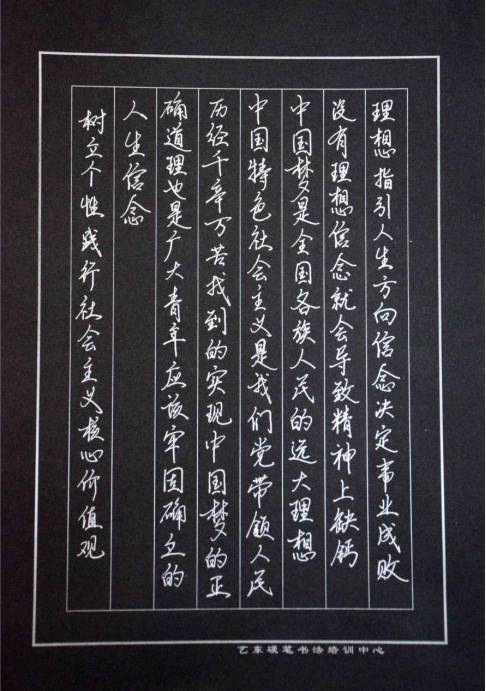 理想指引人生方向信念决定事业成败
没有理想信念就会导致精神上缺钙
中国梦是全国各族人民的远大理想
中国特色社会主义是我们党带领人民
历经千辛万苦找到的实现中国梦的正
确道理也是广大青年应该牢固确立的
人生信念
树立个性践行社会主义核心价值观
艺东硬笔书法培训中心